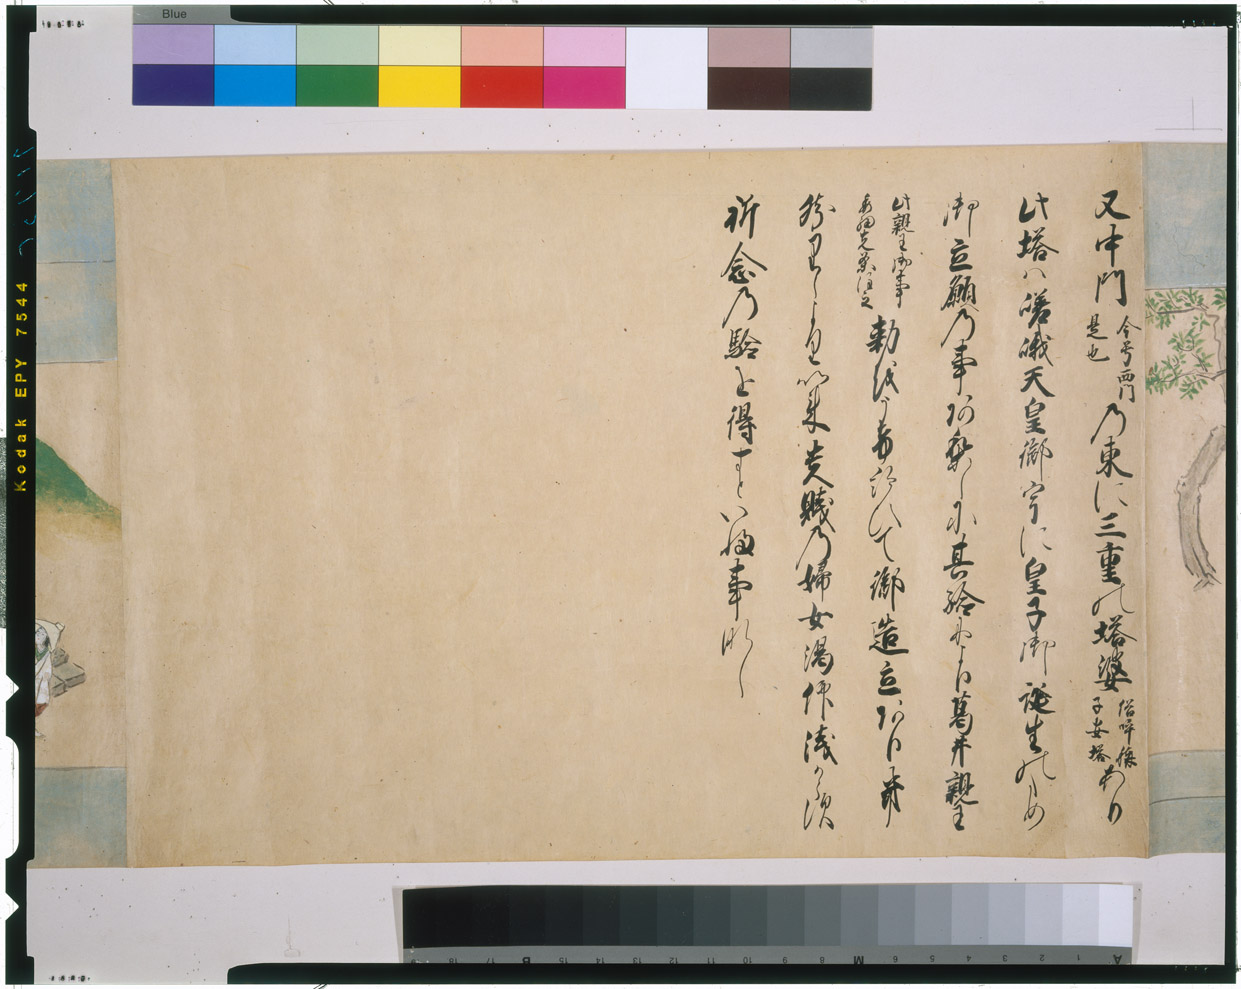 Blue
又中門
今号西門
是也
乃東に三重の塔婆
俗呼称
子安塔
あり
此塔ハ嵯峨天皇御宇に皇子御誕生のため
御立願乃事あり しに其験により葛井親王
此親王御事
勅 て御造立あり
しより以来貴賤乃婦女渇仰浅からす
祈念乃験を得すといふ事なし
Kodak EPY 7544
A 1 2 3 4 5 6 M 8 9 10 11 12 13 14 15 B 17 18 19